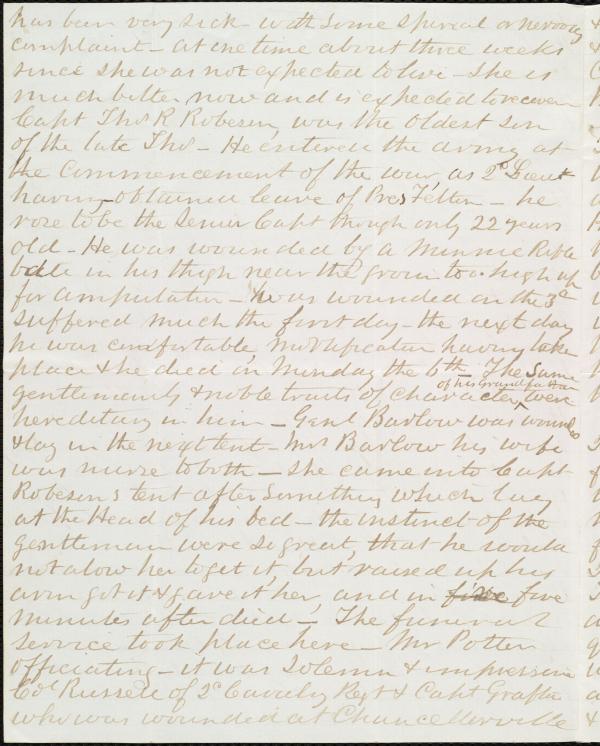 has been very sick with some spinal or nervous
complaint - at one time about three weeks
since she was not expected to live - She is
much better now and is expected to recover
Capt Thos R Robeson, was the oldest son
of the late Thos - He entered the army at
the commencement of the war, as 2d Lieut
having obtained leave of Pres Felton - he
rose to be the Senior Capt though only 22 years
old - He was wounded by a Minnie Rifle
ball in his thigh near the groin too high up
for amputation - he was wounded on the 3d
suffered much the first day - the next day
he was comfortable, mortification having take
place & he died in Monday the 6th - The same
gentlemanly & noble traits of character, of his Grandfather were
hereditary in him - Genl Barlow was wounded
& lay in the next tent - Mrs Barlow his wife
was nurse to both - She came into Capt
Robeson's tent after something which lay
at the Head of his bed - the instinct of the
gentleman were so great, that he would
not alow her to get it, but raised up his
arm got it & gave it her, and in five five
minutes after died - The funeral
service took place here - Mr Potter
officiating - it was solemn & impressive
Col Russell of 2d Cavalry Regt & Capt Grafton
who was wounded at Chancellorville